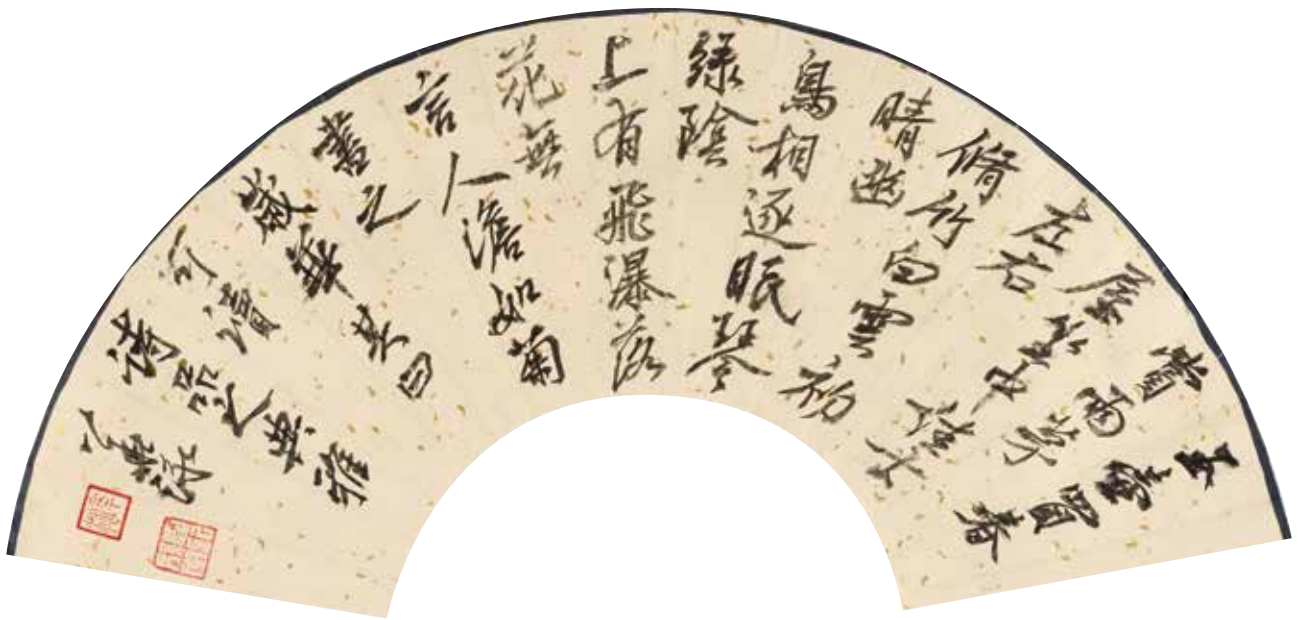 玉壺買春
賞雨茆
屋坐中佳士
左右
脩竹白雲初
晴幽
鳥相逐眠琴
綠陰
上有飛瀑落
花無
言人澹如菊
書之
歲華其曰
可讀
詩品之典雅